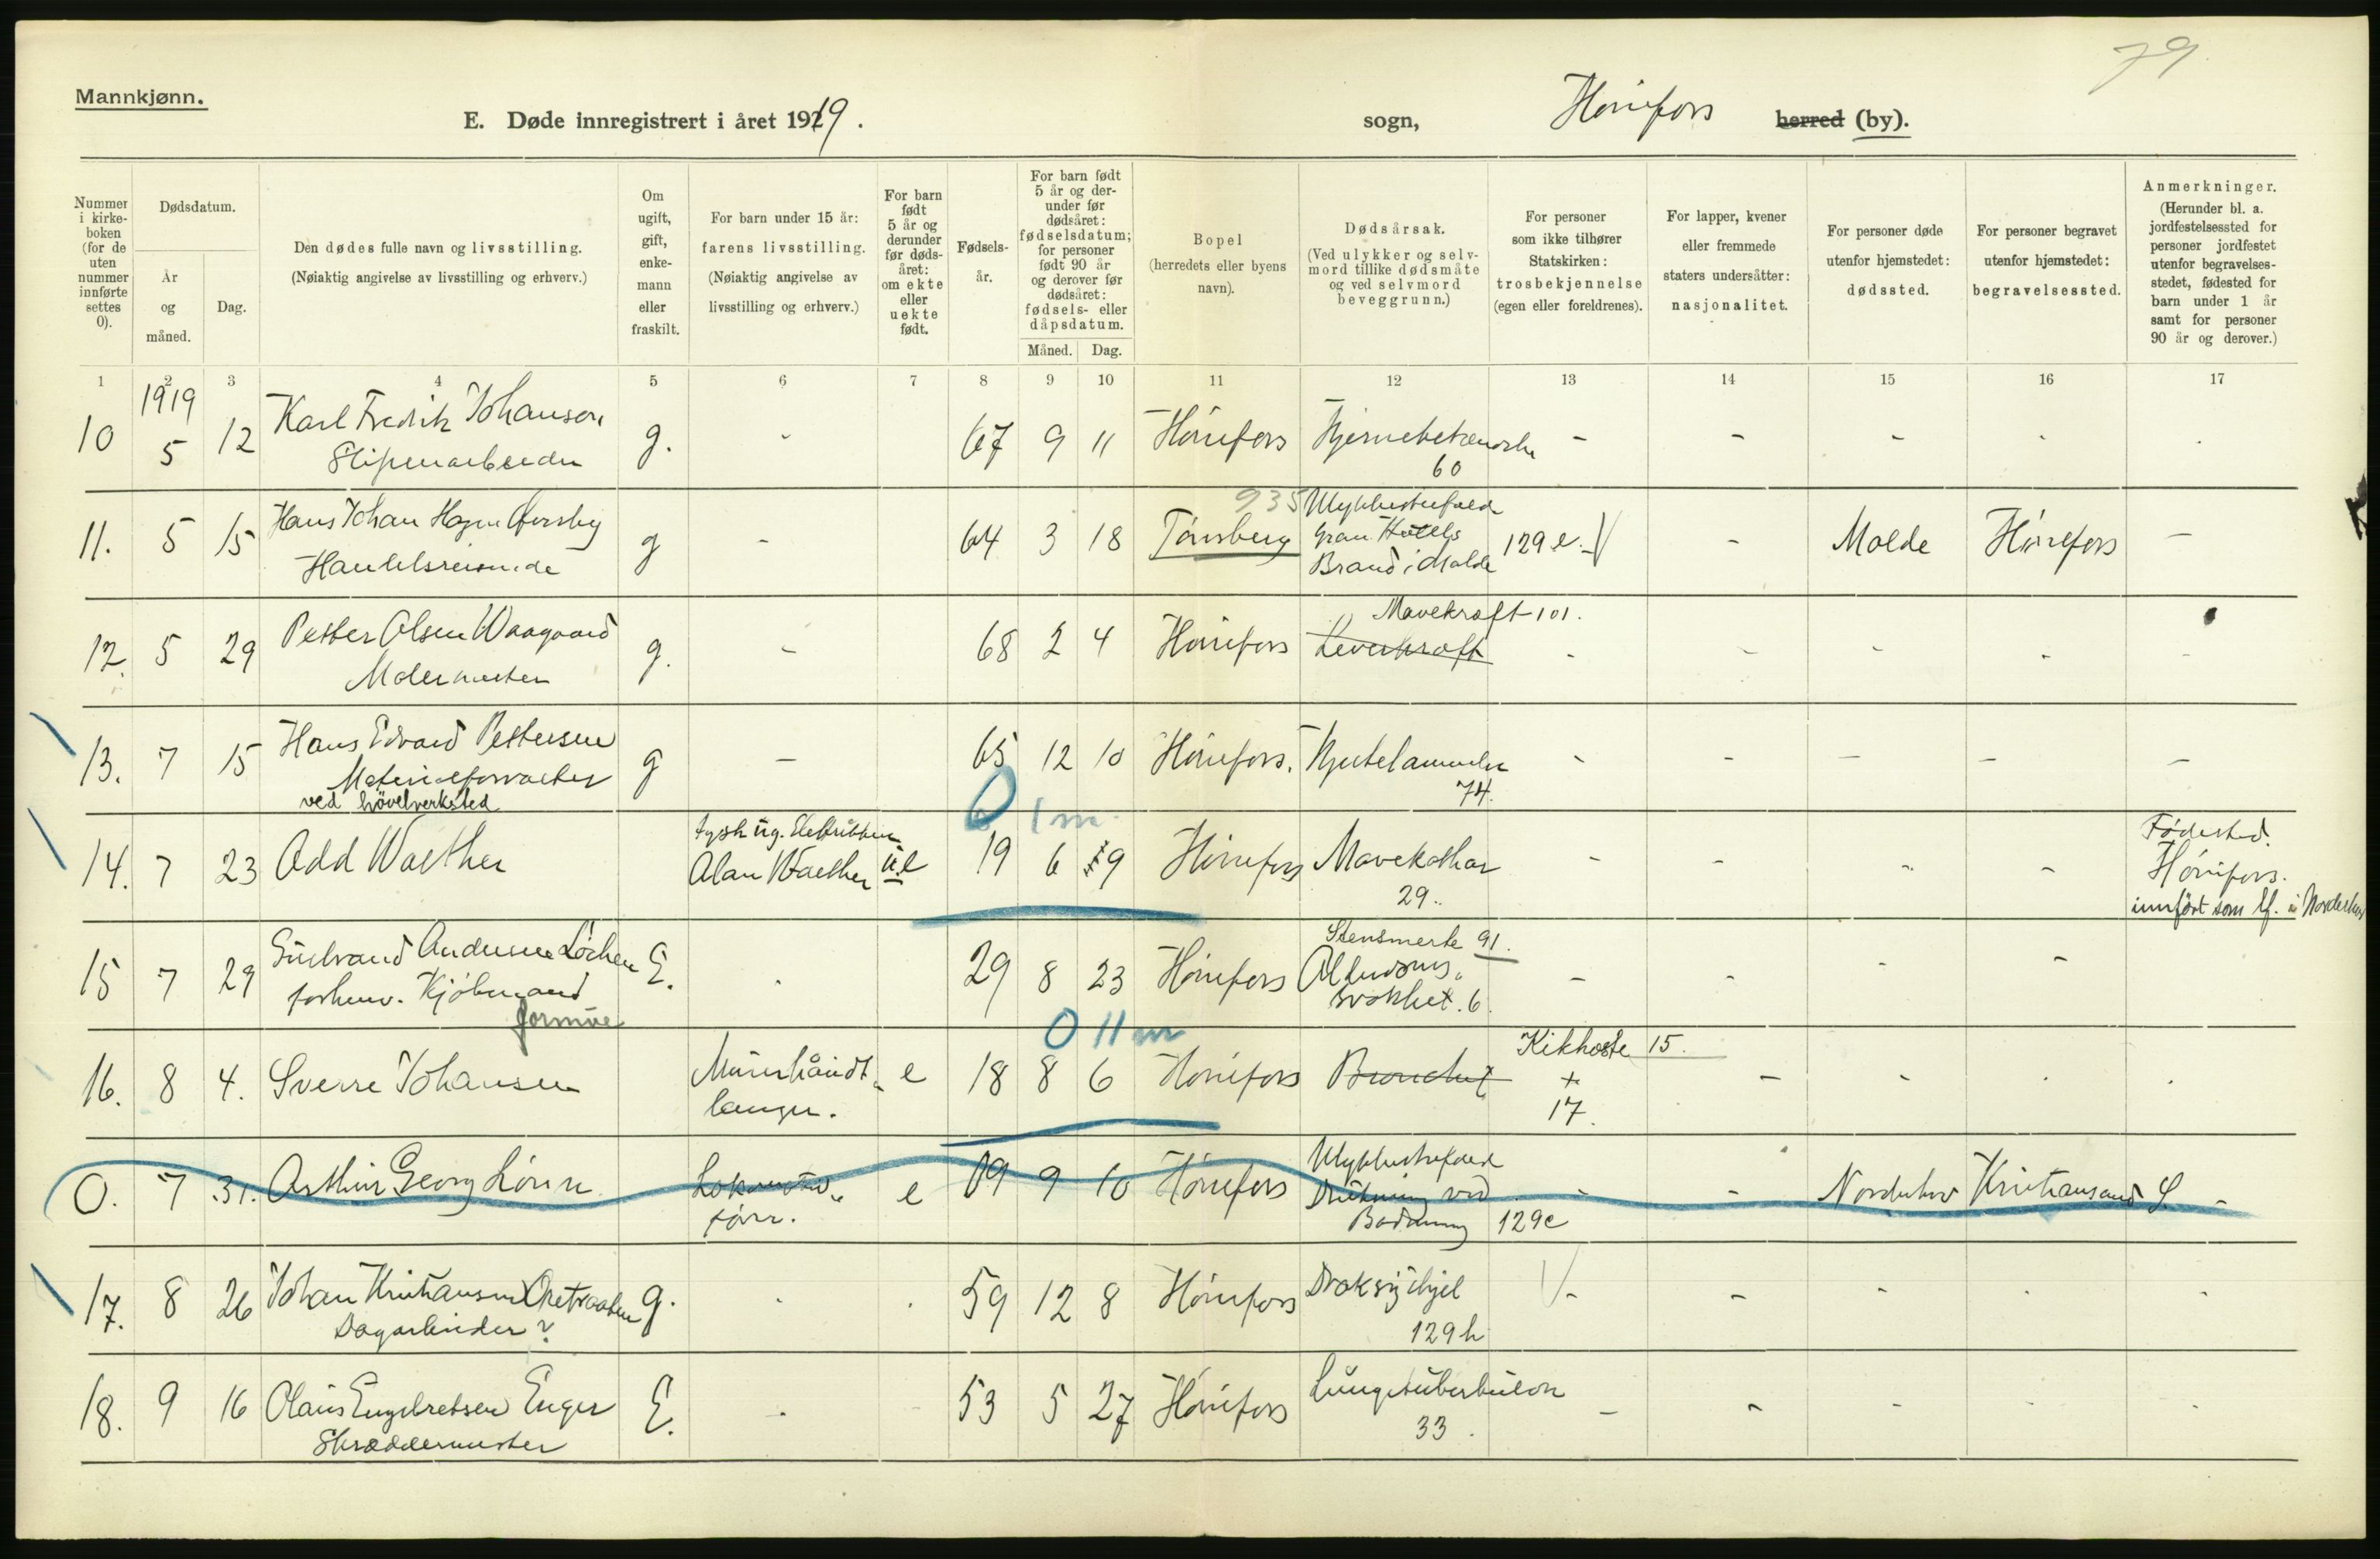 79
Mannkjønn.
E. Døde innregistrert i året 1919.
sogn, Hønefoss herred (by).
Nummer i kirkeboken (for de uten nummer innførte settes 0).
Dødsdatum.
År og måned.
Dag.
Den dødes fulle navn og livsstilling.
(Nøiaktig angivelse av livsstilling og erhverv.)
Om ugift, gift, enkemann eller fraskilt.
For barn under 15 år: farens livsstilling.
(Nøiaktig angivelse av livsstilling og erhverv.)
For barn født 5 år og derunder før dødsåret: om ekte eller uekte født.
Fødselsår.
For barn født 5 år og derunder før dødsåret: fødselsdatum; for personer født 90 år og derover før dødsåret: fødsels- eller dåpsdatum.
Måned. Dag.
Bopel (herredets eller byens navn).
Dødsårsak.
(Ved ulykker og selvmord tillike dødsmåte og ved selvmord beveggrunn.)
For personer som ikke tilhører Statskirken: trosbekjennelse (egen eller foreldrenes).
For lapper, kvener eller fremmede staters undersåtter: nasjonalitet.
For personer døde utenfor hjemstedet: dødssted.
For personer begravet utenfor hjemstedet: begravelsessted.
Anmerkninger.
(Herunder bl. a. jordfestelsessted for personer jordfestet utenfor begravelsesstedet, fødested for barn under 1 år samt for personer 90 år og derover.)
1 2 3 4 5 6 7 8 9 10 11 12 13 14 15 16 17
1919
10 5 12 Karl Fredrik Johansen g. - 67 9 11 Hønefoss - - - - -
60
11. 5 15 Hans Johan Hagen g - 64 3 18 Tønsberg 935 Ulykkestilfælde 129 e. V - Molde Hønefoss -
Handelsreisende
Grand Hotels
Brand i Molde
12. 5 29 Petter Olsen Waagaard g. - 68 2 4 Hønefoss Mavekræft 101. - - - - -
Malermester
Leverkræft
13. 7 15 Hans Edvard Pettersen g - 65 12 10 Hønefoss. - - - - -
Materialforvalter
ved høvelverksted
74.
0 1 m.
14. 7 23 Odd Walther tysk ug. u.e 19 6 9 Hønefoss Mavekathar - - - - Fødested.
Alan Walther
29.
Hønefoss.
innført som lf. i Norderhov
15 7 29 Gulbrand Andersen Løken E. - 29 8 23 Hønefoss Stensmerte 91. - - - -
forhenv. Kjøbmand
Alderdoms-
svakhet. 6
formue
0 11 m
16. 8 4. Sverre Johansen Murerhåndt- e 18 8 6 Hønefoss Bronchit Kikhoste 15. - - - -
langer.
+
17.
0. 7 31. Arthur Georg Lønn Lokomotiv- e 09 9 10 Hønefoss Ulykkestilfælde - - Norderhov Kristiansand S. -
fører.
Drukning ved
Badning 129e
17. 8 26 Johan Kristiansen g. - - 59 12 8 Hønefoss V - - - - -
Dagarbeider ?
129 h
18. 9 16 Olaus Engebretsen Enger E. - 53 5 27 Hønefoss Lungetuberkulose - - - - -
Skræddermester
33.